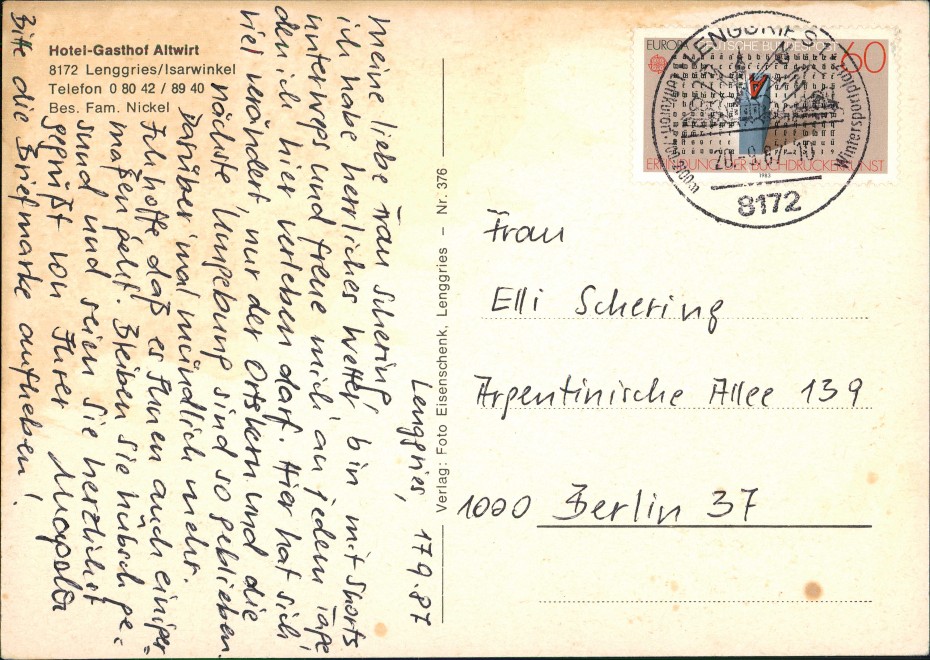 Hotel-Gasthof Altwirt
8172 Lenggries/Isarwinkel
Telefon 0 80 42 / 89 40
Bes. Fam. Nickel
Lenggries, 17.9.87
Meine liebe Frau Schering,
ich habe herrliches Wetter, bin mit Shorts
unterwegs und freue mich an jedem Tage
den ich hier verleben darf. Hier hat sich
viel verändert, nur der Ortskern und die
nächste Umgebung sind so geblieben.
Darüber mal mündlich mehr.
Ich hoffe daß es Ihnen auch einiger=
maßen geht. Bleiben Sie hübsch ge=
sund und seien Sie herzlichst
gegrüßt von Ihrer
Bitte die Briefmarke aufheben!
Verlag: Foto Eisenschenk, Lenggries – Nr. 376
EUROPA DEUTSCHE BUNDESPOST 60
ERFINDUNG DER BUCHDRUCKERKUNST
1983
LENGGRIES
Luftkurort · 700-1700 m
Wintersportplatz
8172
Frau
Elli Schering
Argentinische Allee 139
1000 Berlin 37